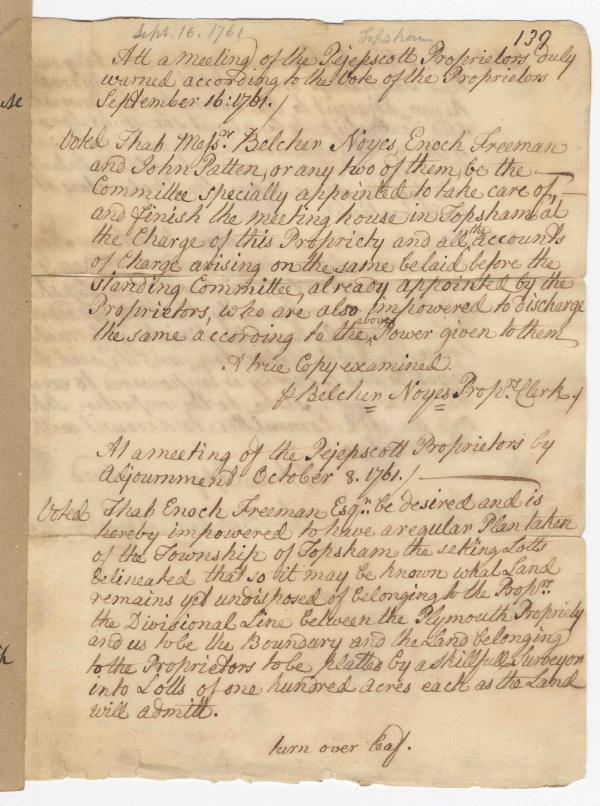 Sept. 16, 1761 Topsham 139
Att a meeting of the Pejepscott Proprietors duly
warned according to the Vote of the Proprietors
September 16: 1761./
Voted That Messrs. Belcher Noyes, Enoch Freeman
and John Patten, or any two of them, be the
Committee specially appointed to take care of,
and finish the meeting house in Topsham at
the Charge of this Propriety and all the accounts
of Charge arising on the same be laid before the
Standing Committee, already appointed by the
Proprietors, who are also impowered to discharge
the same according to the above Power given to them
A true Copy examined.
p Belcher Noyes Proprs. Clerk./
At a meeting of the Pejepscott Proprietors by
Adjournment October 8. 1761./
Voted That Enoch Freeman Esqr. be desired and is
hereby impowered to have a regular Plan taken
of the Township of Topsham the setling Lotts
delineated that so it may be known what Land
remains yet undisposed of belonging to the Proprs.
the Divisional Line between the Plymouth Propriety
and us to be the Boundary and the Land belonging
to the Proprietors to be platted by a skillfull Surveyor
into Lotts of one hundred acres each as the Land
will admitt.
turn over leaf.